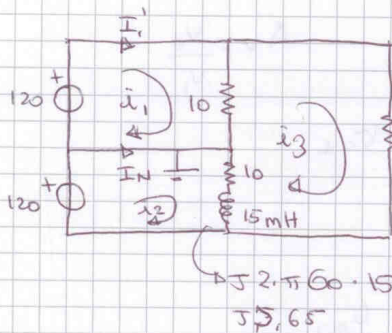 I₁'
+
120
i₁
10
i₃
IN
+
120
i₂
10
15mH
J2.π60.15
J5,65